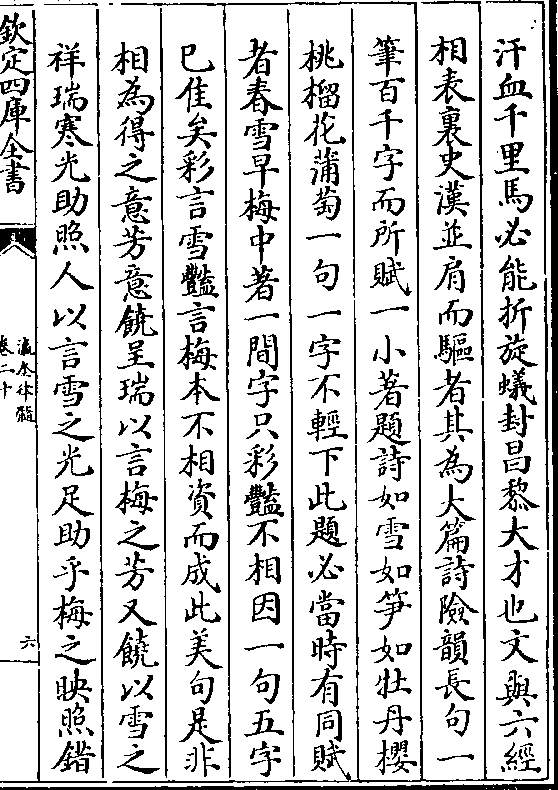 汗血千里馬必能折旋蟻封昌黎大才也文與六經
相表裏史漢並肩而驅者其為大篇詩險韻長句一
筆百千字而所賦一小著題詩如雪如笋如牡丹櫻
桃榴花蒲萄一句一字不輕下此題必當時有同賦
者春雪早梅中著一間字只彩豔不相因一句五字
已佳矣彩言雪豔言梅本不相資而成此美句是非
相為得之意芳意饒呈瑞以言梅之芳又饒以雪之
祥瑞寒光助照人以言雪之光足助乎梅之映照錯
欽定四庫全書
瀛奎律髓
卷二十
六